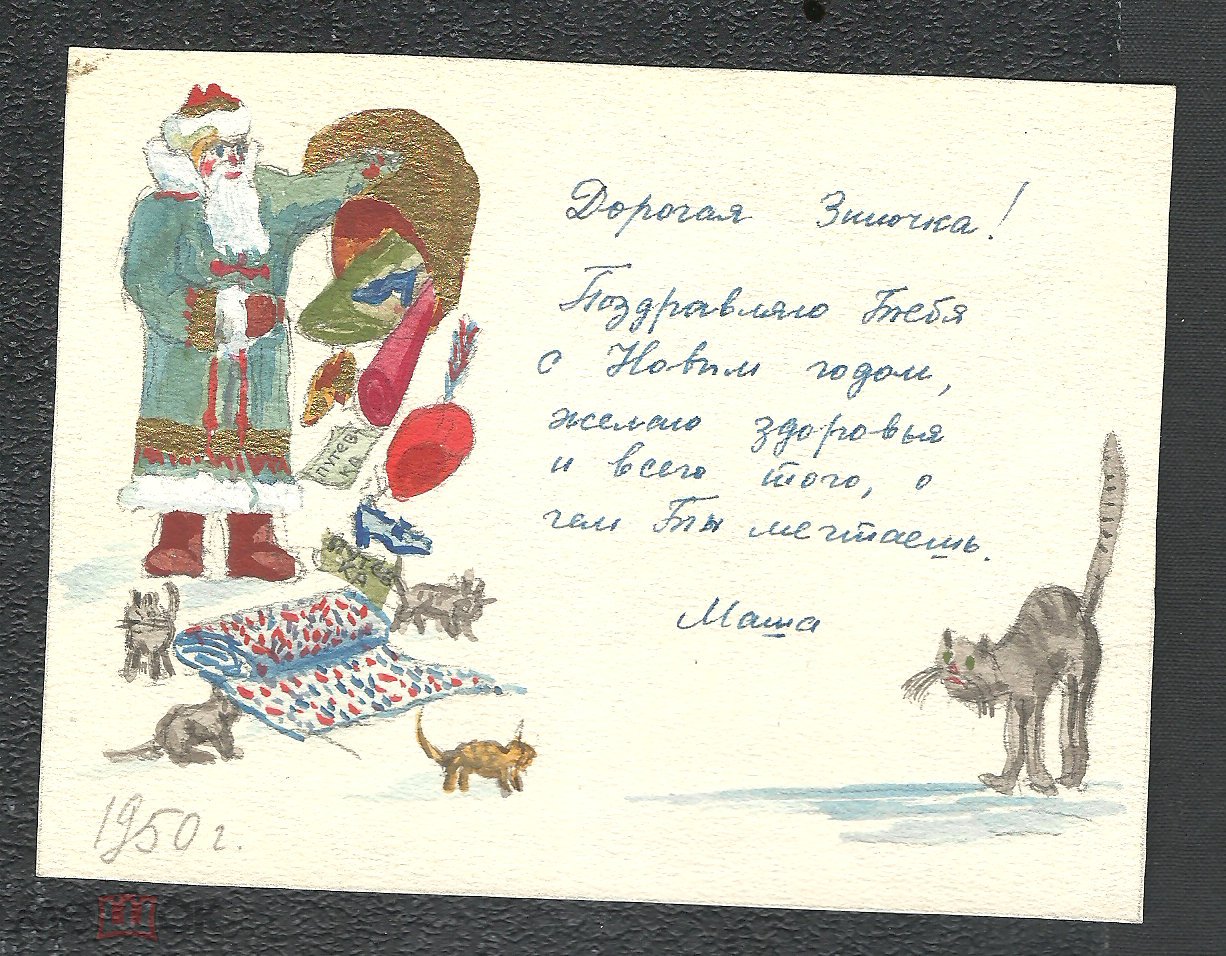 Дорогая Зиночка!
Поздравляю Тебя
с Новым годом,
желаю здоровья
и всего того, о
чем Ты мечтаешь.
Маша
ПУТЕВ
КА
ПУТЕВ
КА
1950 г.